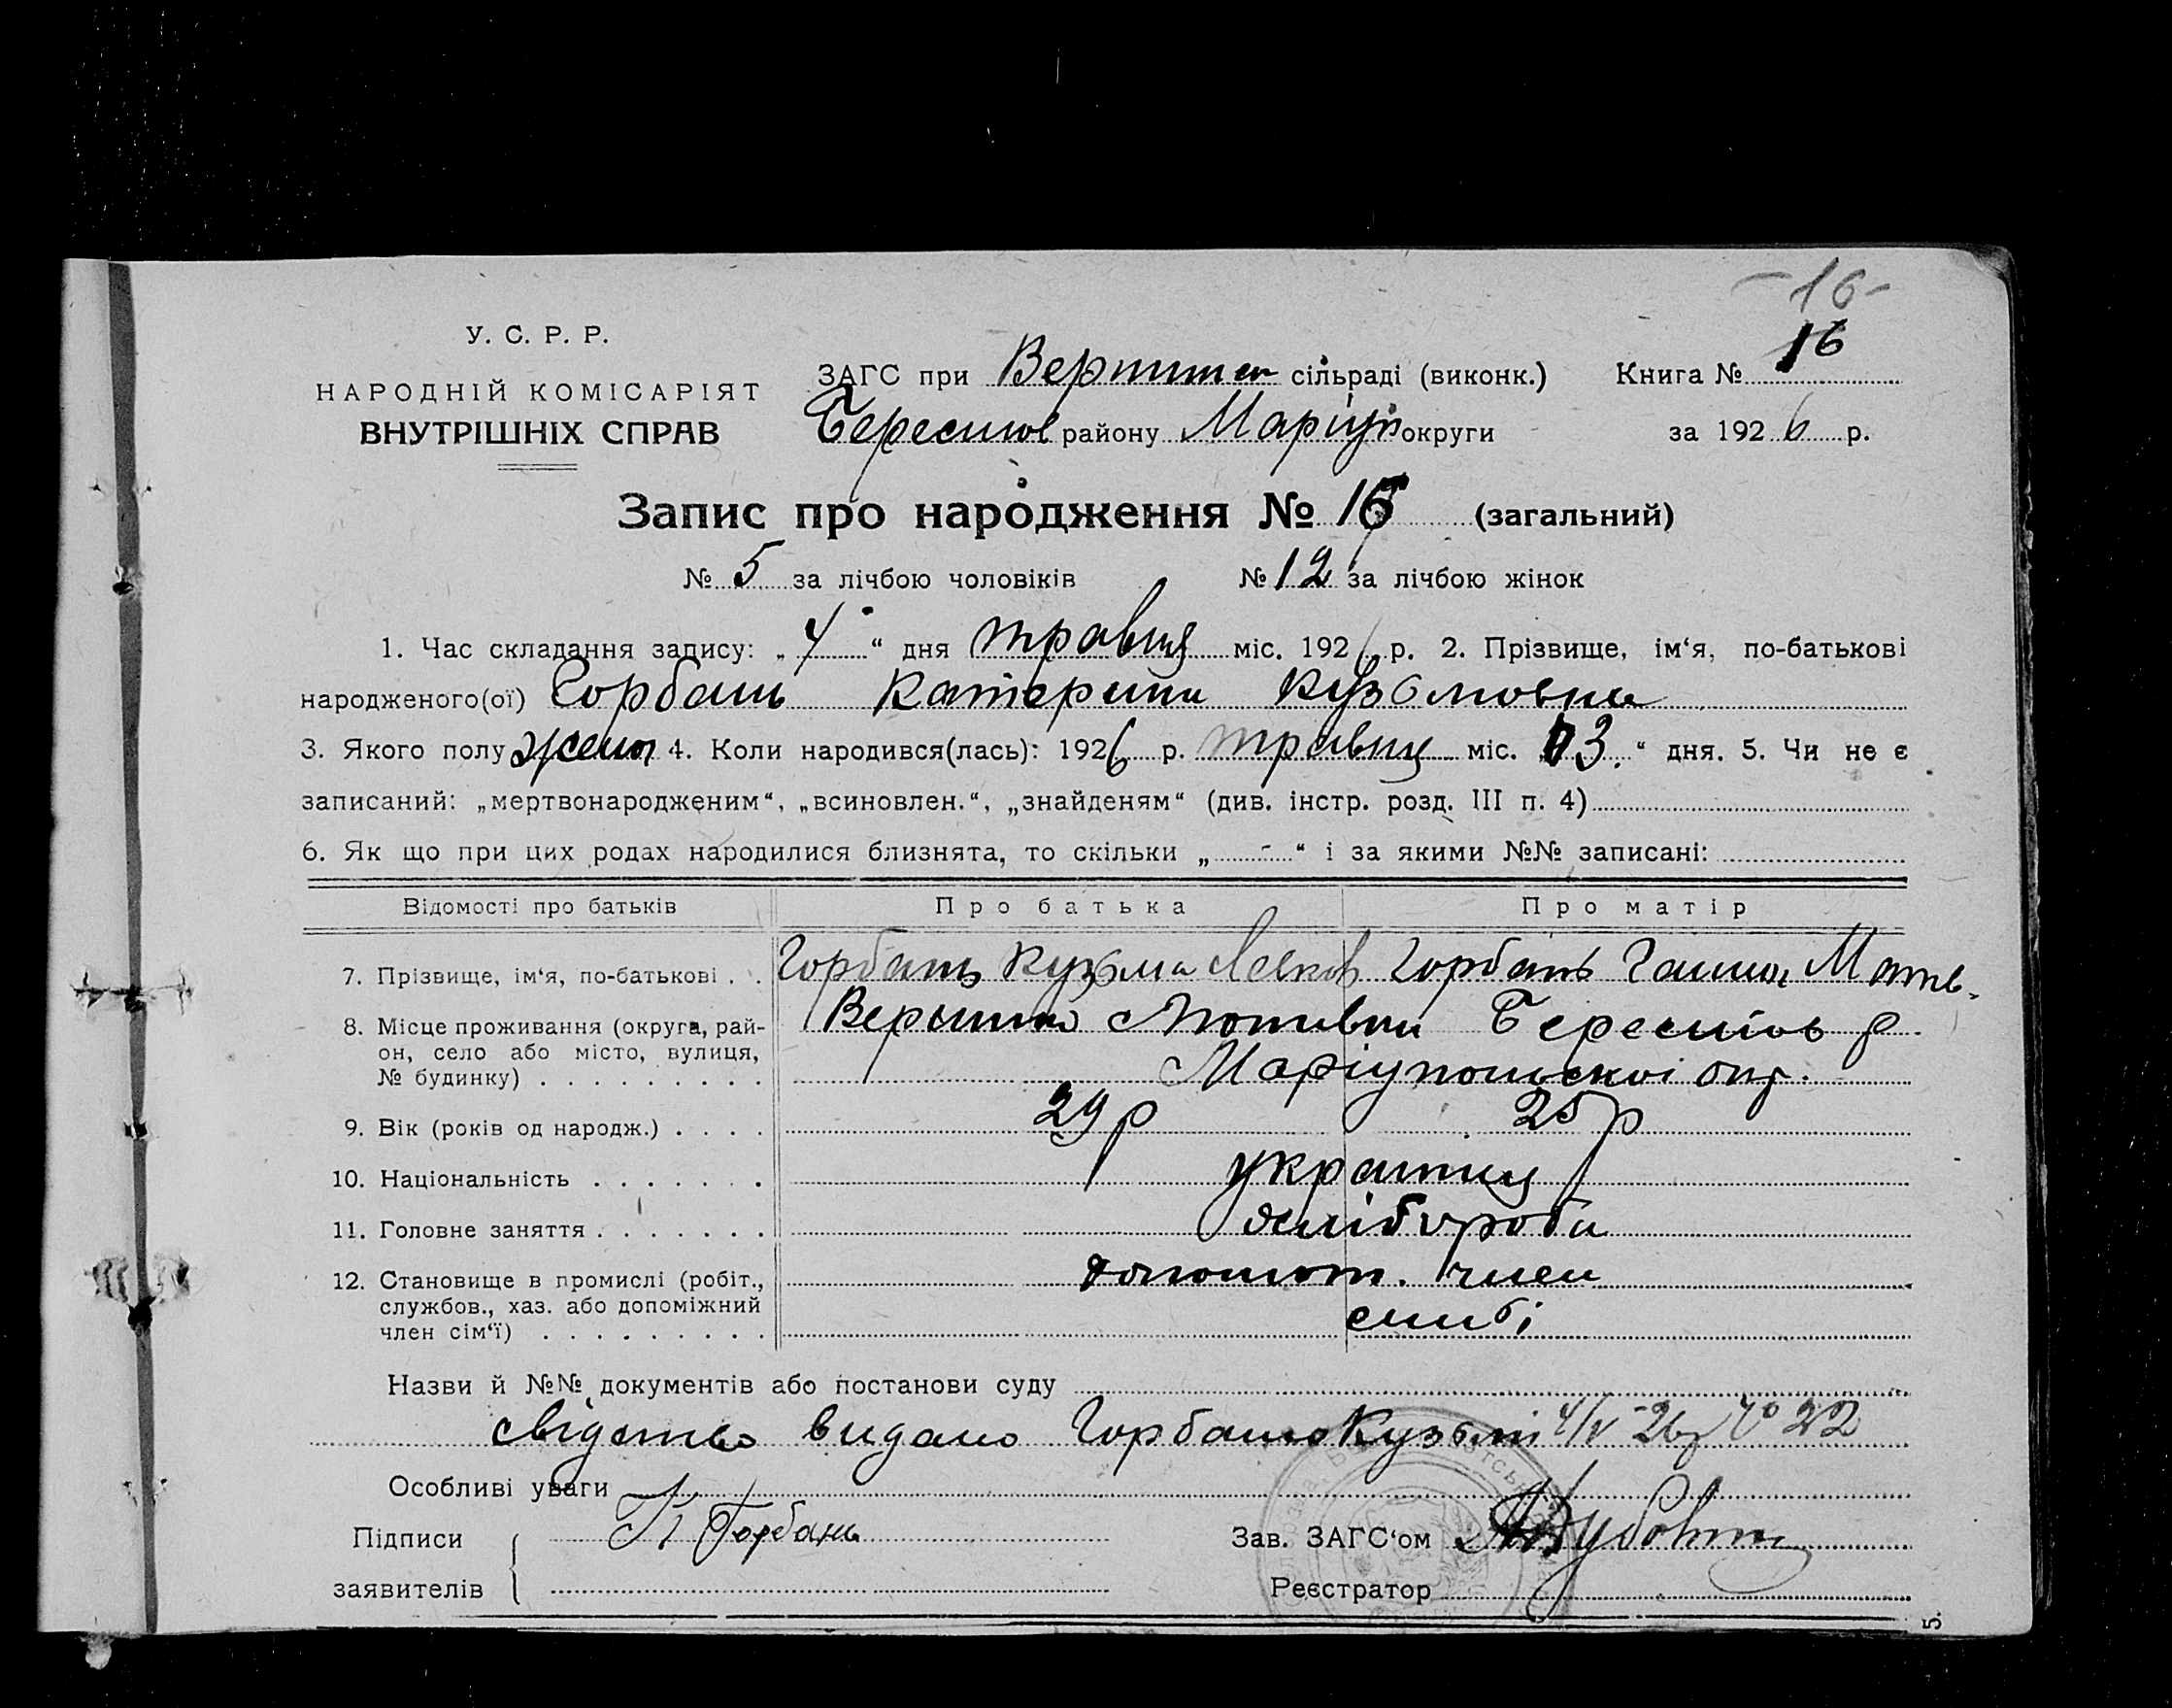 -16-
У. С. Р. Р.
НАРОДНІЙ КОМІСАРІЯТ
ВНУТРІШНІХ СПРАВ
ЗАГС при сільраді (виконк.) Книга № 16
Берестов району Маріуп округи за 1926 р.
Запис про народження № 16 (загальний)
№ 5 за лічбою чоловіків № 12 за лічбою жінок
1. Час складання запису: „ 4 “ дня травня міс. 1926 р. 2. Прізвище, ім‘я, по-батькові
народженого(ої) Горбань Катерина Кузьмовна
3. Якого полу жено 4. Коли народився(лась): 1926 р. травня міс. „ 3. “ дня. 5. Чи не є
записаний: „мертвонародженим“, „всиновлен.“, „знайденям“ (див. інстр. розд. III п. 4)
6. Як що при цих родах народилися близнята, то скільки „ - “ і за якими №№ записані:
Відомості про батьків Про батька Про матір
7. Прізвище, ім‘я, по-батькові . . Горбань Кузьма Горбань Ганна Матв.
8. Місце проживання (округа, рай-
он, село або місто, вулиця,
№ будинку) . . . . . . . . . Берестов р.
Маріупольскоі окр.
9. Вік (років од народж.) . . . . 29 р 25 р
10. Національність . . . . . . . україн
11. Головне заняття . . . . . . . хліборобы
12. Становище в промислі (робіт.,
службов., хаз. або допоміжний
член сім‘ї) . . . . . . . . . член
сим'ї
Назви й №№ документів або постанови суду
свідотво видано Горбаню Кузьмі 4/V-26р № 22
Особливі уваги
Підписи К Горбань Зав. ЗАГС‘ом
заявителів Реєстратор
5.